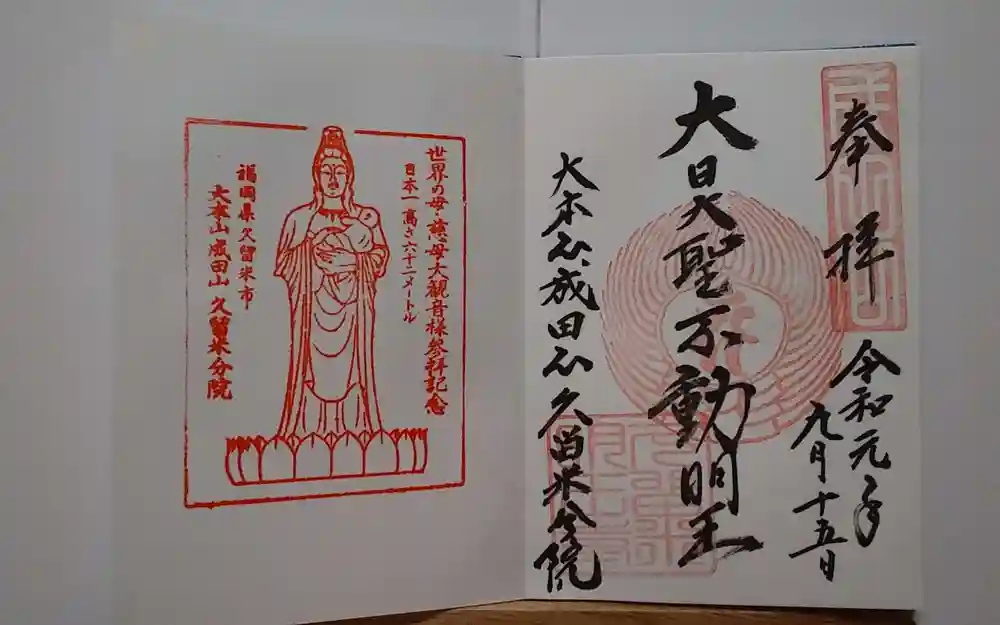 奉拝
令和元年
九月十五日
大日大聖不動明王
大本山成田山久留米分院
世界の母・慈母大観音様参拝記念
日本一高さ六十二メートル
福岡県久留米市
大本山成田山久留米分院